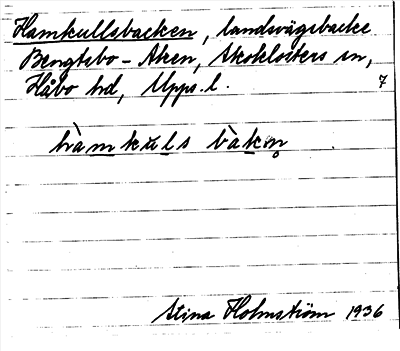 Hamkullsbacken, landsvägsbacke
Bengtsbo - Aken, Skoklosters sn,
Håbo hd, Upps. l. 7
hàmkuls bàkn̥
Stina Holmström 1936